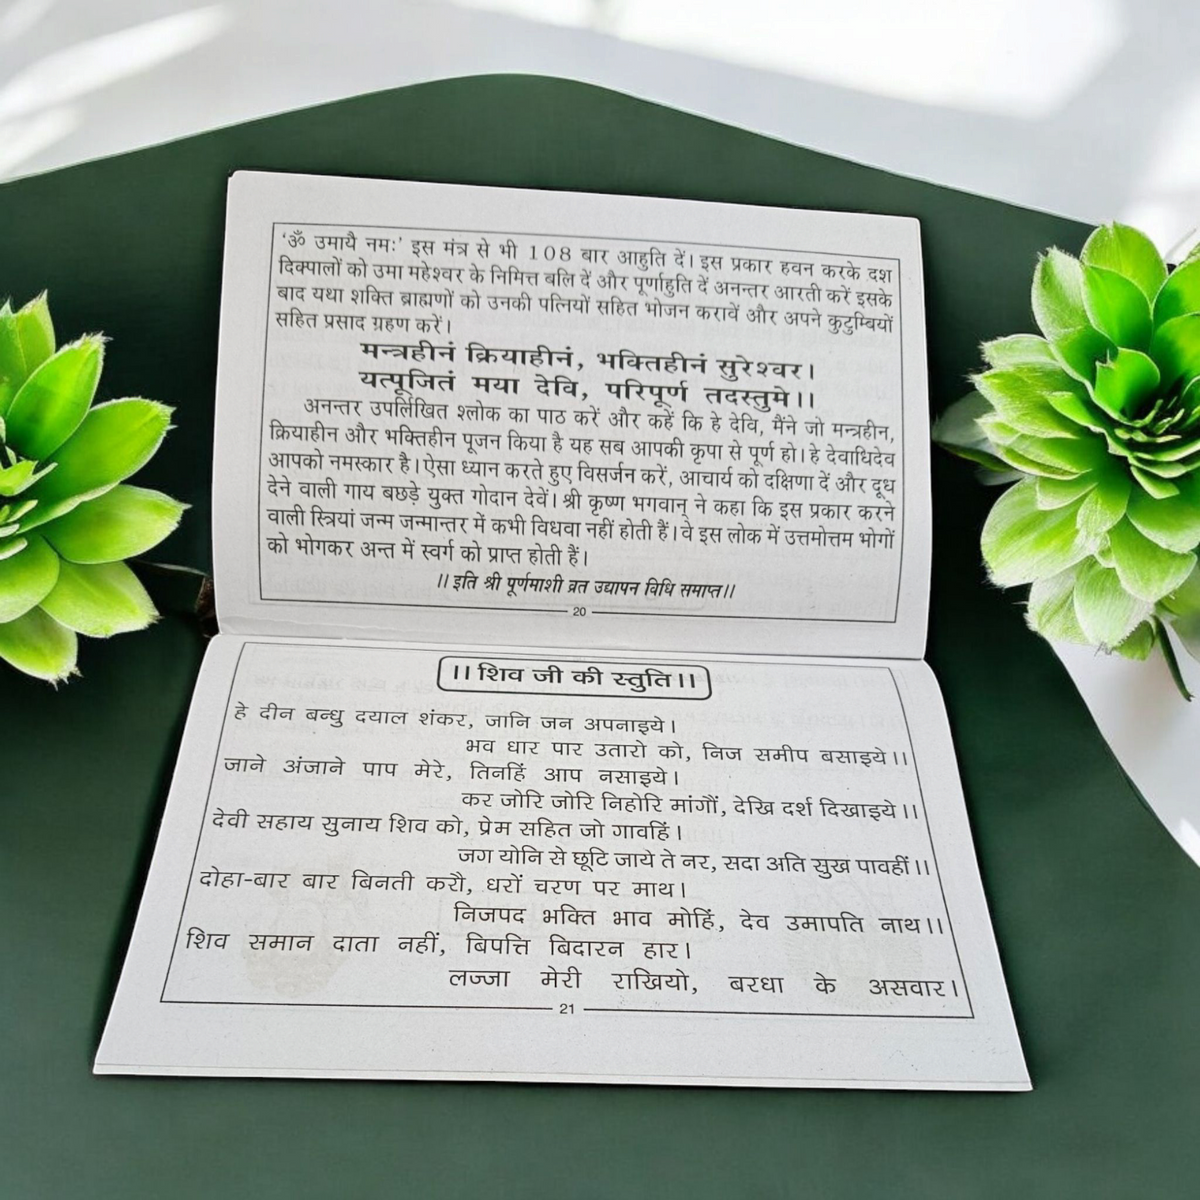 ‘ॐ उमायै नमः’ इस मंत्र से भी 108 बार आहुति दें। इस प्रकार हवन करके दश
दिक्पालों को उमा महेश्वर के निमित्त बलि दें और पूर्णाहुति दें अनन्तर आरती करें इसके
बाद यथा शक्ति ब्राह्मणों को उनकी पत्नियों सहित भोजन करावें और अपने कुटुम्बियों
सहित प्रसाद ग्रहण करें।
मन्त्रहीनं क्रियाहीनं, भक्तिहीनं सुरेश्वर।
यत्पूजितं मया देवि, परिपूर्ण तदस्तुमे।।
अनन्तर उपर्लिखित श्लोक का पाठ करें और कहें कि हे देवि, मैंने जो मन्त्रहीन,
क्रियाहीन और भक्तिहीन पूजन किया है यह सब आपकी कृपा से पूर्ण हो। हे देवाधिदेव
आपको नमस्कार है। ऐसा ध्यान करते हुए विसर्जन करें, आचार्य को दक्षिणा दें और दूध
देने वाली गाय बछड़े युक्त गोदान देवें। श्री कृष्ण भगवान् ने कहा कि इस प्रकार करने
वाली स्त्रियां जन्म जन्मान्तर में कभी विधवा नहीं होती हैं। वे इस लोक में उत्तमोत्तम भोगों
को भोगकर अन्त में स्वर्ग को प्राप्त होती हैं।
।। इति श्री पूर्णमाशी व्रत उद्यापन विधि समाप्त।।
20
।। शिव जी की स्तुति।।
हे दीन बन्धु दयाल शंकर, जानि जन अपनाइये।
भव धार पार उतारो को, निज समीप बसाइये।।
जाने अंजाने पाप मेरे, तिनहिं आप नसाइये।
कर जोरि जोरि निहोरि मांगौं, देखि दर्श दिखाइये।।
देवी सहाय सुनाय शिव को, प्रेम सहित जो गावहिं।
जग योनि से छूटि जाये ते नर, सदा अति सुख पावहीं।।
दोहा-बार बार बिनती करौ, धरों चरण पर माथ।
निजपद भक्ति भाव मोहिं, देव उमापति नाथ।।
शिव समान दाता नहीं, बिपत्ति बिदारन हार।
लज्जा मेरी राखियो, बरधा के असवार।
21